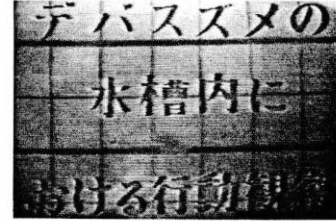 デバスズメの
水槽内に
おける行動観察